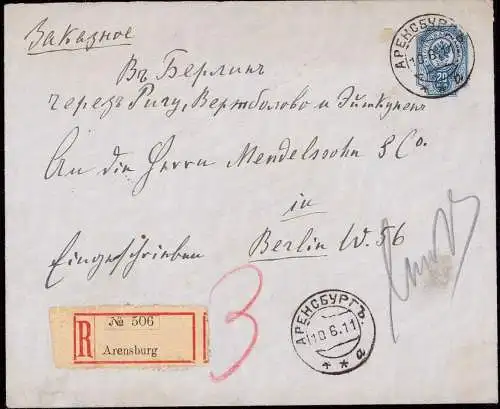 Заказное
АРЕНСБУРГЪ
10.6.11
* * а
20
Въ Берлинъ
черезъ Ригу, Вержболово и Эйткуненъ
An die Herrn Mendelssohn & Co.
in
Eingeschrieben Berlin W. 56
3
R
№ 506
Arensburg
АРЕНСБУРГЪ
10.6.11
* * а